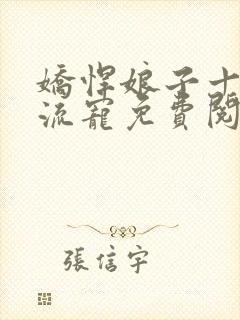 嬌悍娘子十
流寵免費閱
張信宇